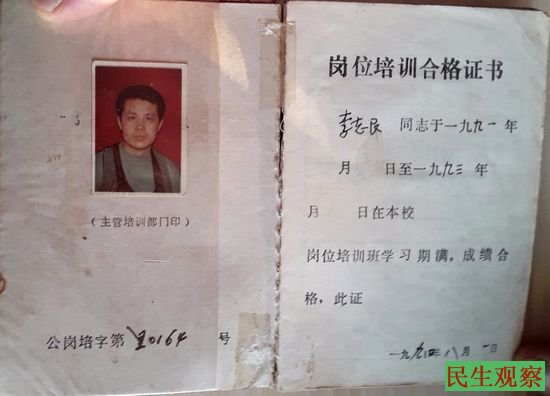 （主管培训部门印）
公岗培字第 10194 号
岗位培训合格证书
李志民 同志于一九九一年
月 日至一九九三年
月 日在本校
岗位培训班学习期满，成绩合
格，此证
一九九四年八月一日
民生观察